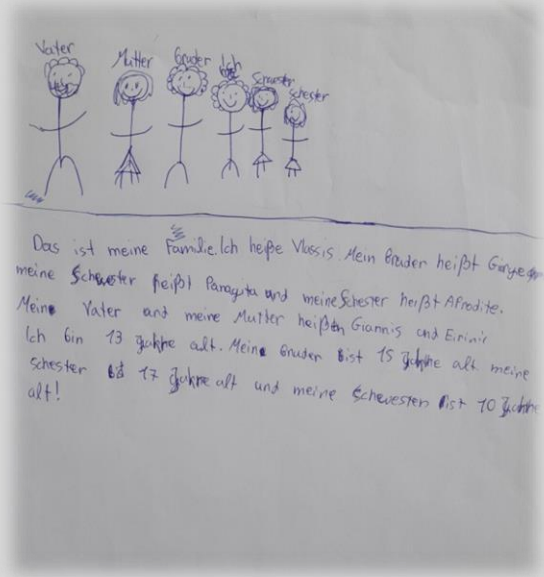 Vater Mutter Bruder Ich Schwester Schester
Das ist meine Familie. Ich heiße Vlassis. Mein Bruder heißt
meine Schwester heißt Panagita und meine Schester heißt Afrodite.
Meine Vater und meine Mutter heißen Giannis und Eirini.
Ich bin 13 Jahre alt. Meine Bruder ist 15 Jahre alt meine
schester ist 17 Jahre alt und meine Schwester ist 10 Jahre
alt!